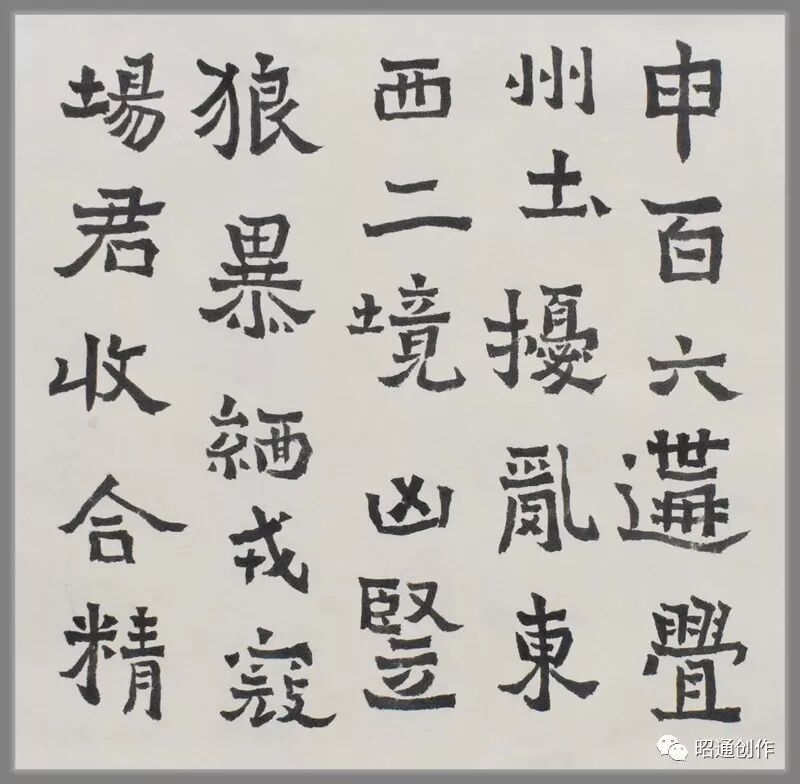 申百六遘舋
州土擾亂東
西二境凶竪
狼暴緬戎寇
場君收合精
昭通创作